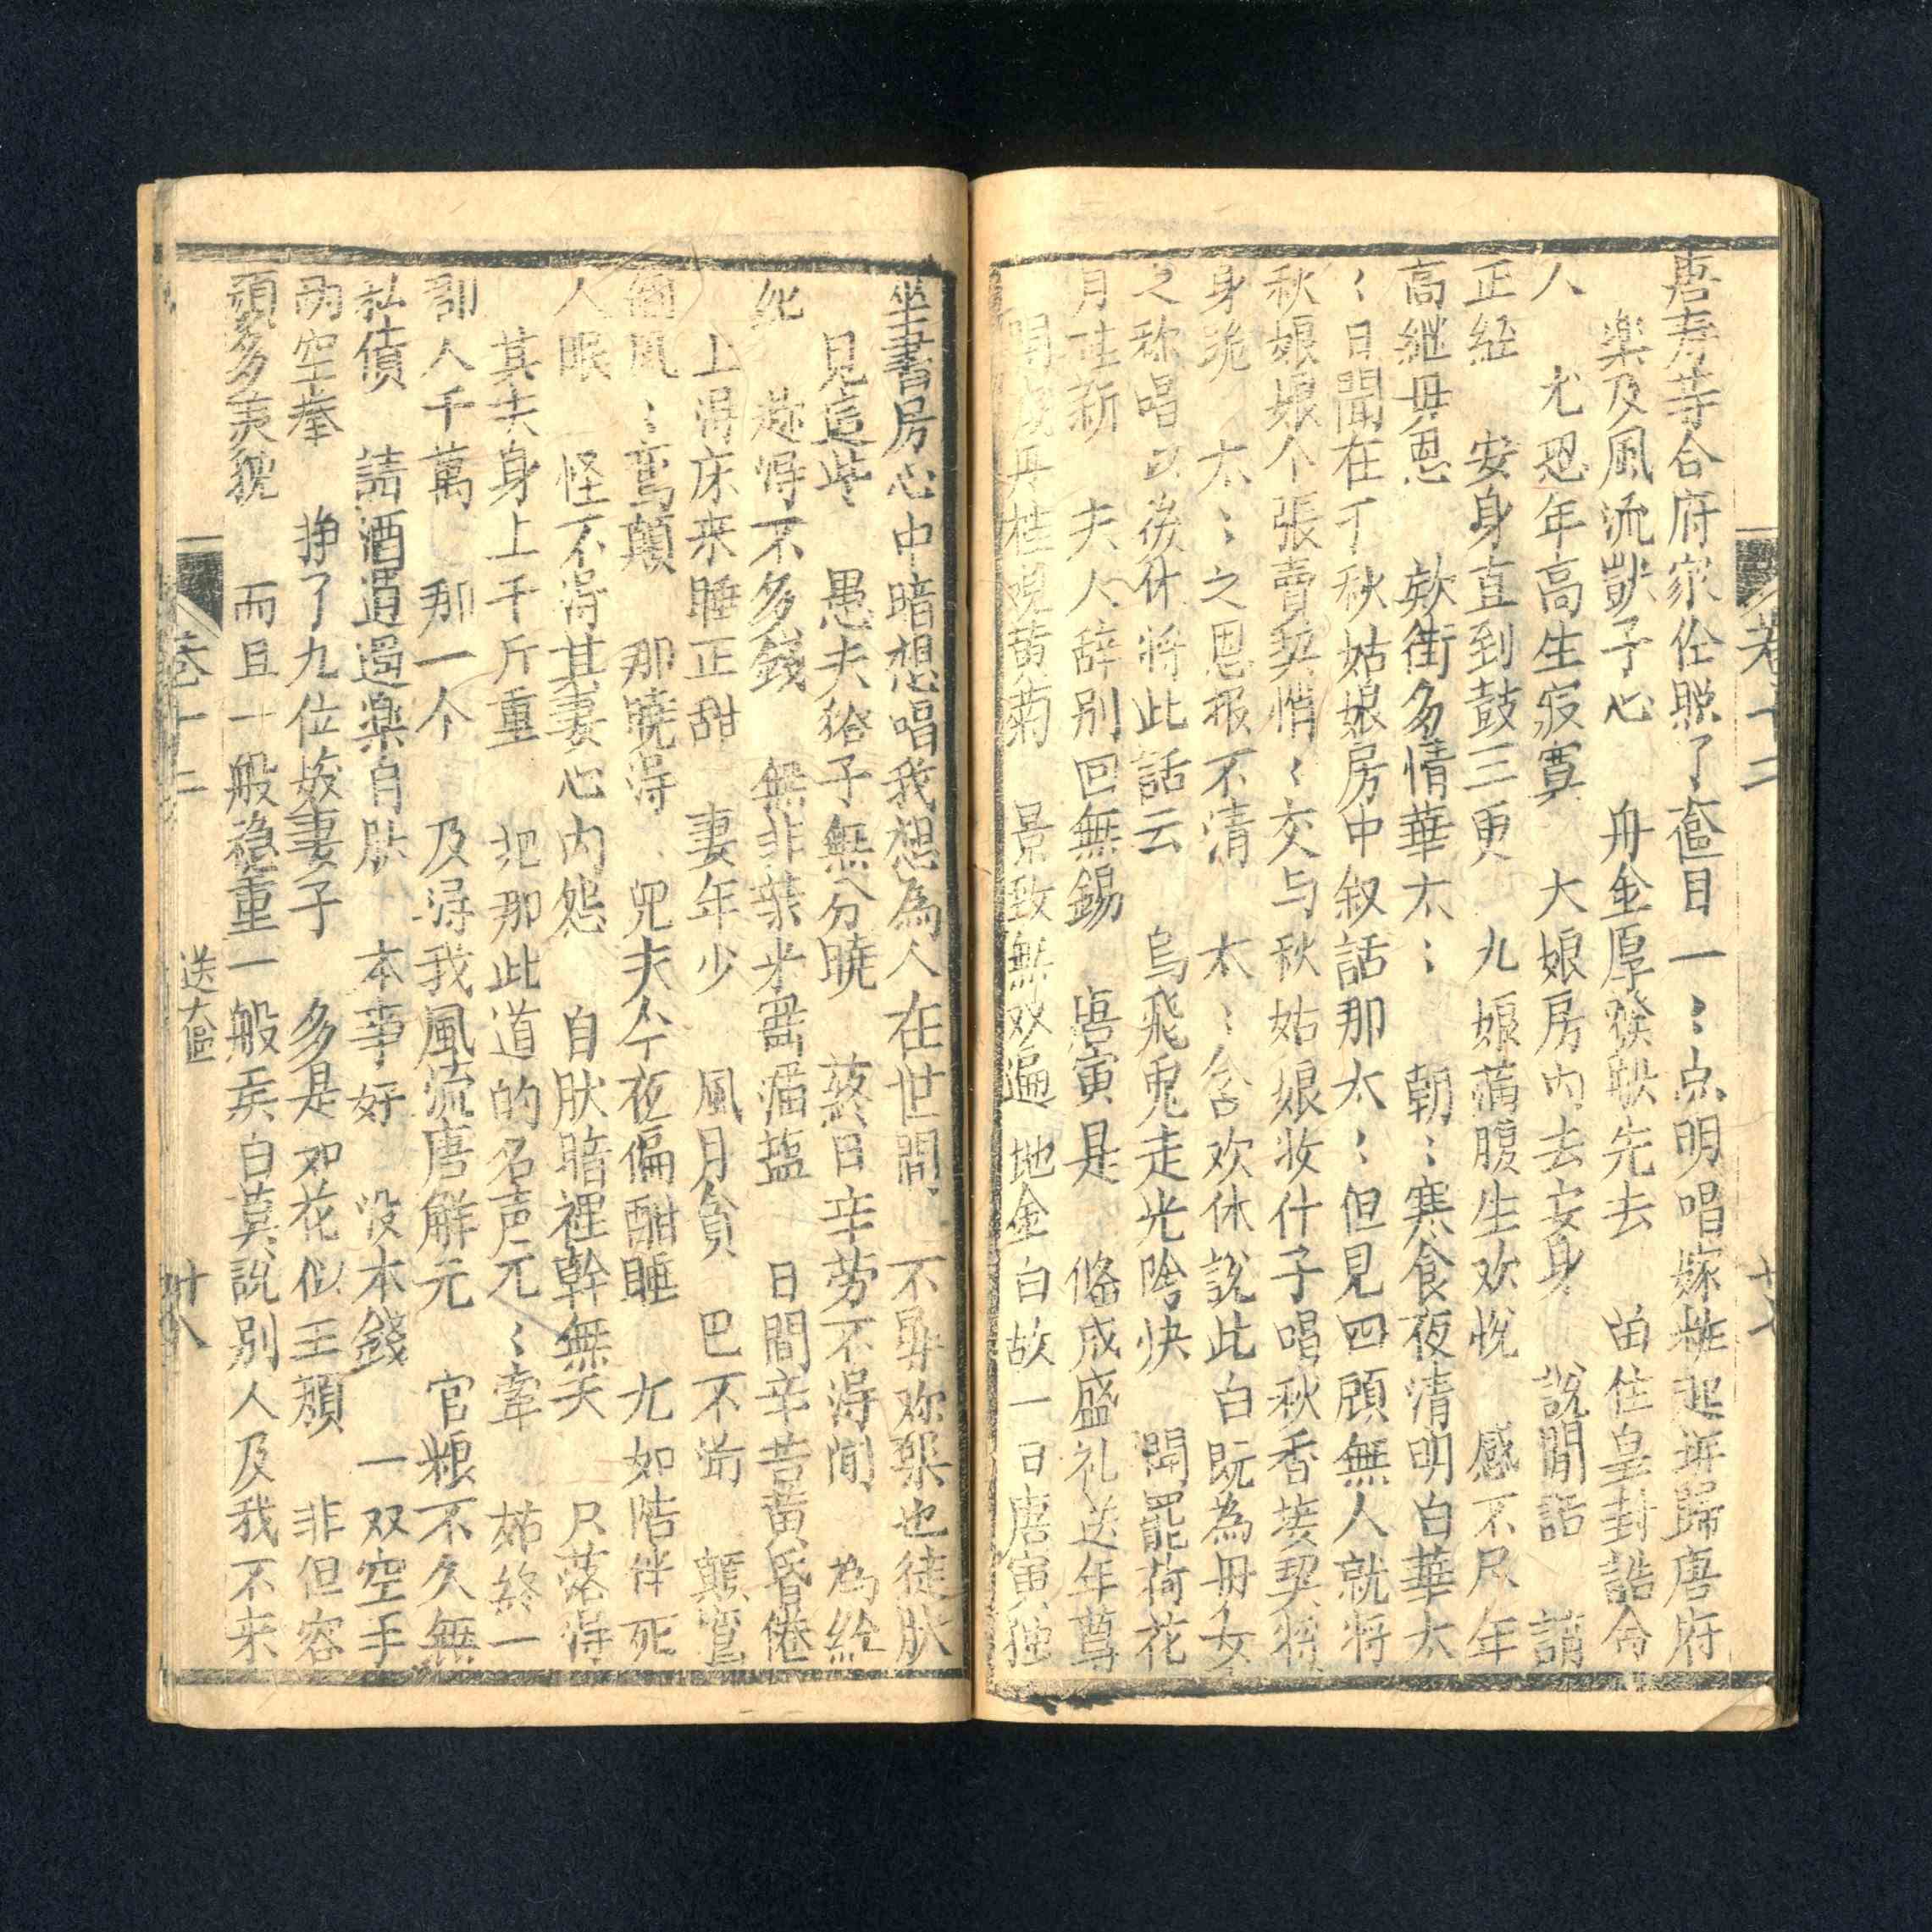 卷十二
唐寿等合府家伩照了奩目一〻点明唱嫁粧起逰歸唐府
楽及風流獃子心 舟金厚発郎先去 畄住皇封誥命
人 尤恐年高生寂寞 大娘房内去安身 說閒話 誦
正經 安身直到鼓三更 九娘滿腹生欢悦 感不尺年
高継毋恩 欸街多情華太〻 朝〻寒食夜清明白華太
〻日間在于秋姑娘房中叙話那太〻但見四顧無人就将
秋娘娘个張賣契悄〻交与秋姑娘妆什子唱秋香接契将
身跪 太〻之恩报不清 太〻含欢休說此白既為毋女
之称唱以後休将此話云 烏飛兎走光陰快 開罷荷花
月桂新 夫人辞别回無錫 唐寅是 俻成盛礼送年尊
開殘丹桂覌黄菊 景致無双遍地金白故一日唐寅独
坐書房心中暗想唱我想為人在世間 不尋欢楽也徒肰
見這些 愚夫俗子無分曉 終日辛劳不淂间 為給
他 趁淂不多錢 無非柴米醬油塩 日間辛苦黄昏倦
上淂床来睡正甜 妻年少 風月貪 巴不淂 顛鸞
倒鳳〻鸞顛 那曉淂 兒夫今夜偏酣睡 尤如陪伴死
人眠 怪不淂其妻心内怨 自肰暗裡幹無天 尺落淂
其夫身上千斤重 把那此道的名声元〻牽 始終一
郡人千萬 那一个 及淂我風流唐解元 官粮不久無
私债 請酒遊遊楽自肰 本事好 没本錢 一双空手
兩空拳 挣了九位姣妻子 多是如花似玉顔 非但容
顔多美貌 而且一般稳重一般矣白莫說别人及我不来
卷十二
送大區
廿八